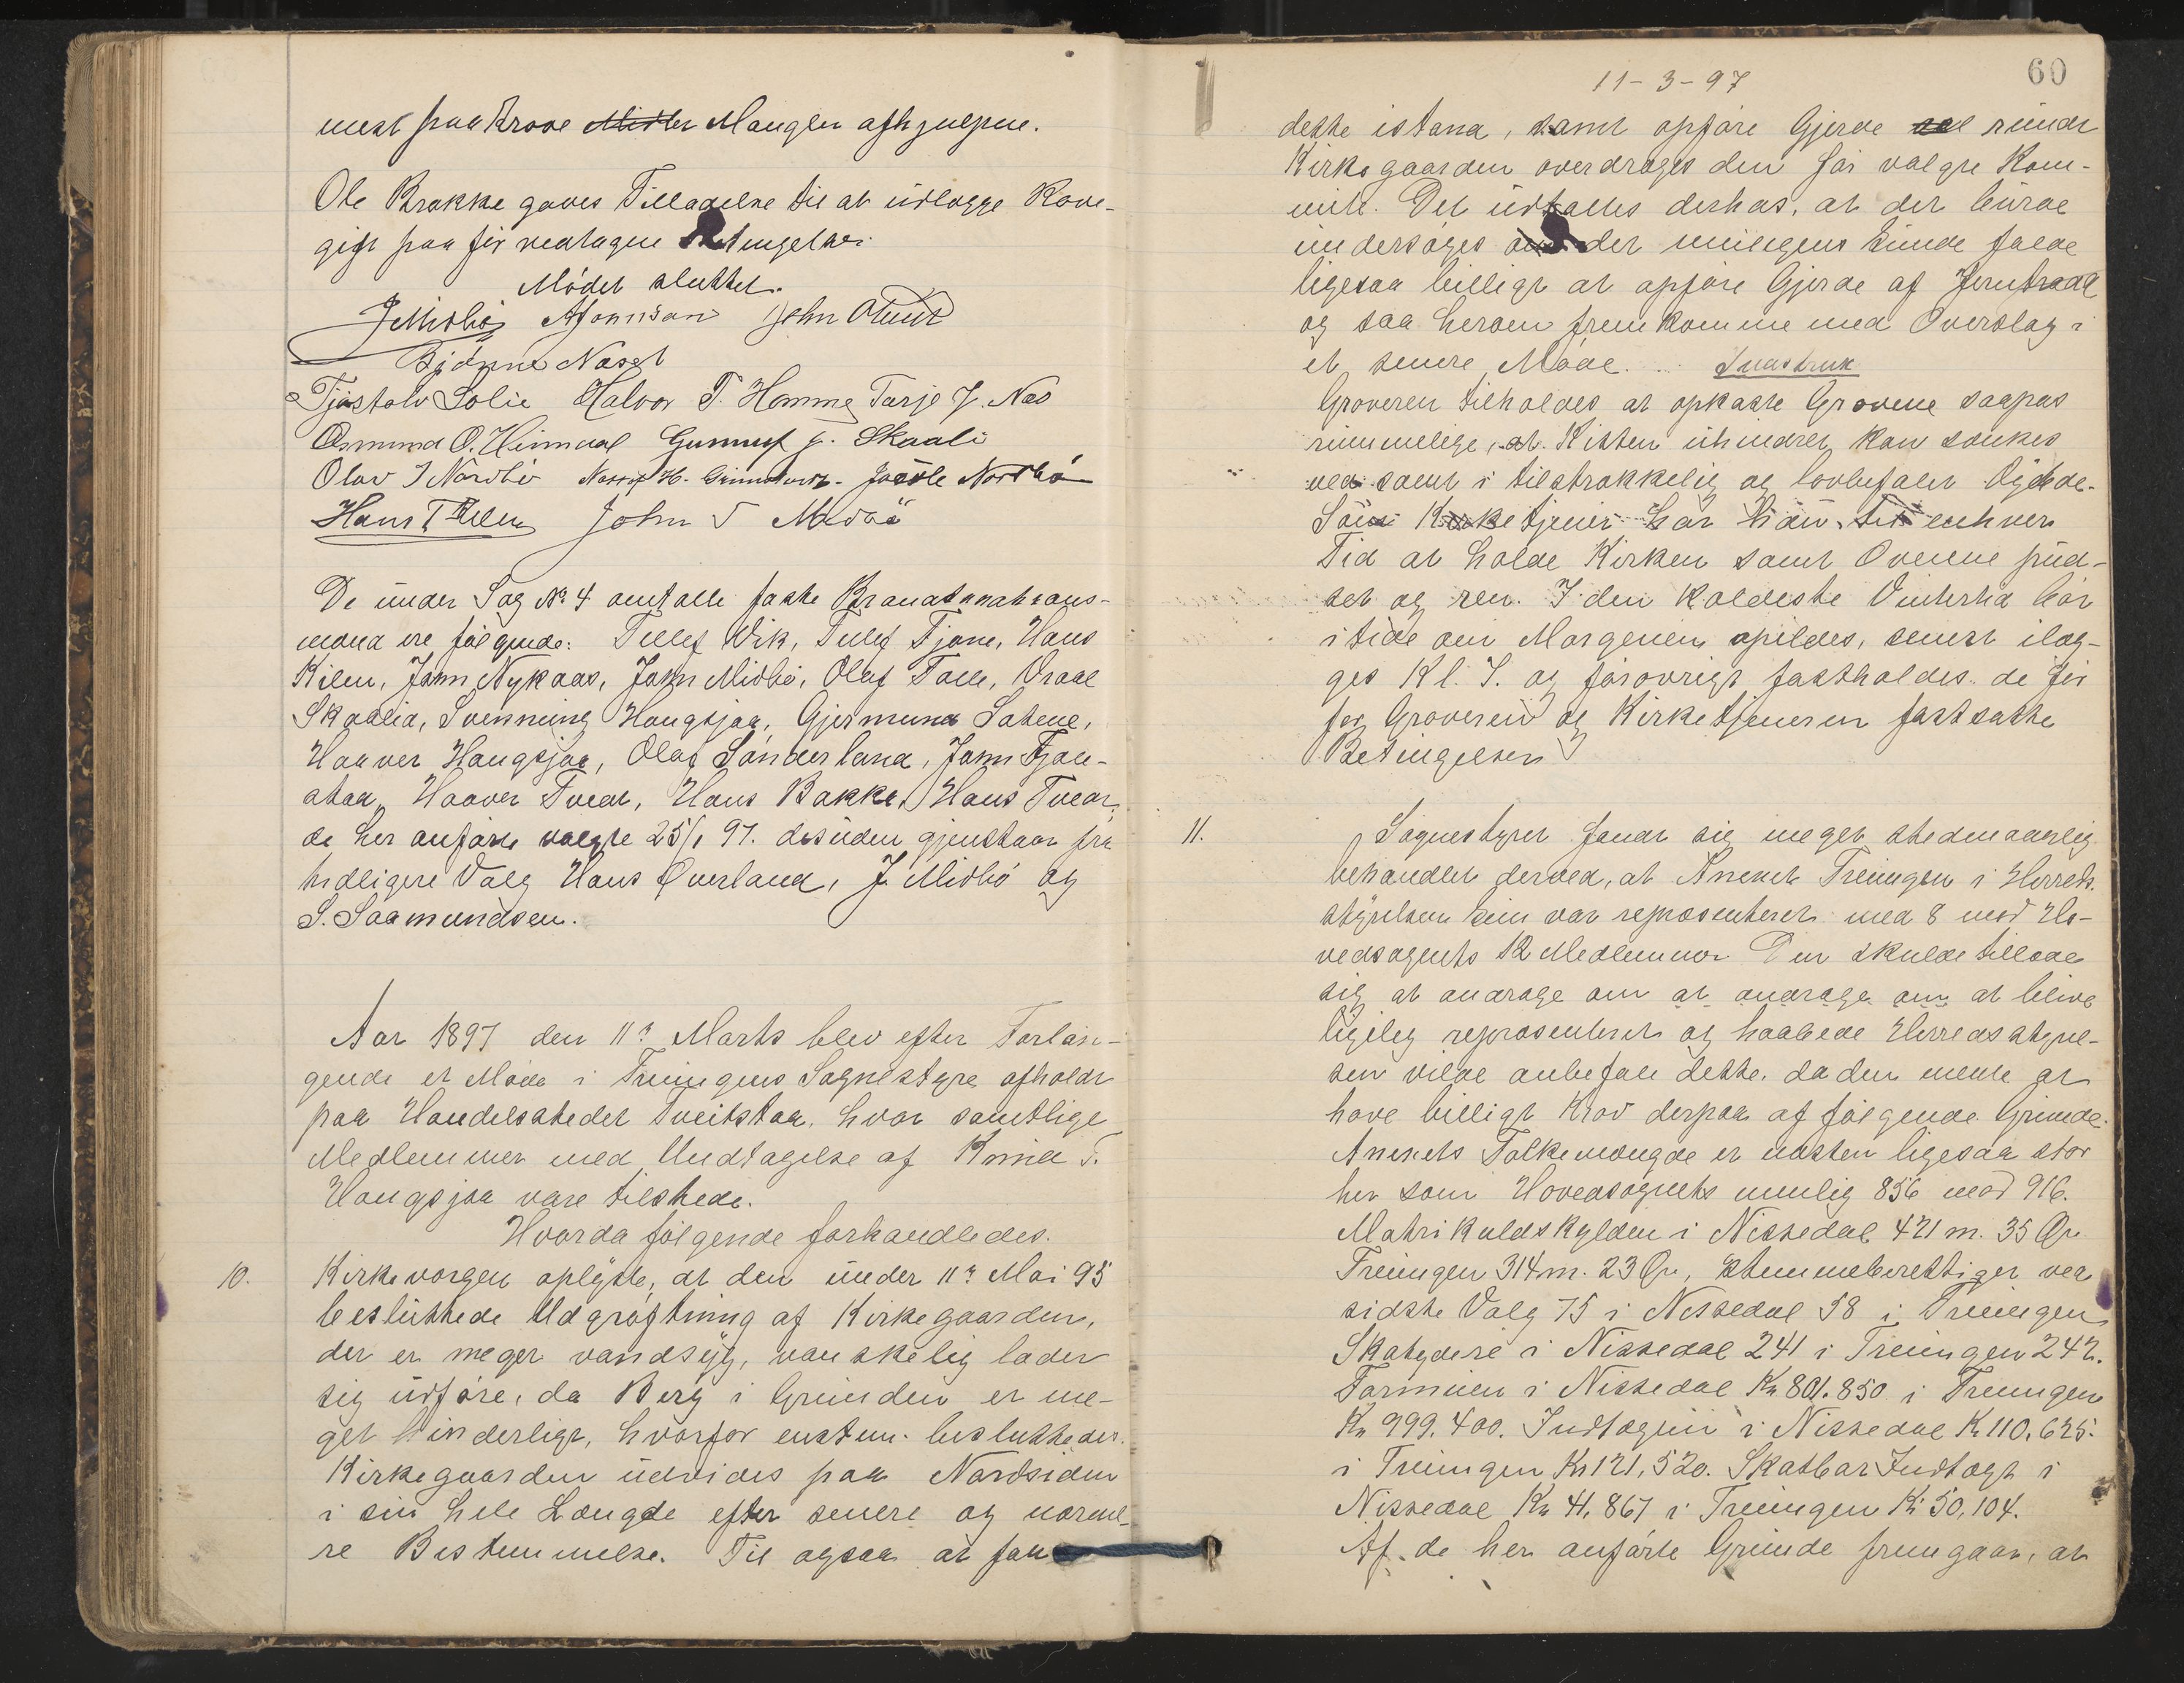 mest paakrove Midler Manglen afhjulpne.
Ole Brække gaves Tilladelse til at udlægge Kove-
gift paa før vedtagne Betingelser.
Mødet sluttet.
J Midbø A Jonnson John Otund
Bjönn Næset
Tjöstolv Solie Halvor T. Homme Tarje J. Næs
Osmund O. Heimdal Gunnuf J. Skaali
Olav J Nordbö H. Jaeole Nordbö
Hans T Kilen John T Midbö
De under Sag No 4 omtalte faste Brandtaxations-
mænd ere følgende: Tellef Vik, Tellef Tjønn, Hans
Kilen, John Nykaas, John Midbø, Olaf Talle, Vraal
Skaalid, Svenning Haugsjaa, Gjermund Satene,
Haaver Haugsjaa, Olaf Sønderland, John Tjøn-
stad, Haaver Tveit, Hans Bakke, Hans Tveit,
de her anførte valgte 25/1 97. desuden gjenstaar fra
tidligere Valg Hans Øverland, J. Midbø og
S. Saamundsen.
Aar 1897 den 11te Marts blev efter Forlan-
gende et Møde i Treungens Sognestyre afholdt
paa Handelsstedet Tveitstaa, hvor samtlige
Medlemmer med Undtagelse af Knud T.
Haugsjaa vare tilstede.
Hvorda følgende forhandledes.
10. Kirkevorgen oplyste, at den under 11te Mai 95
besluttede Udgrøftning af Kirkegaarden,
der er meget vandsyg, vanskelig lader
sig udføre, da Berg i Grunden er me-
get hinderligt, hvorfor enstem. besluttedes.
Kirkegaarden udvides paa Nordsiden
i sin hele Længde efter senere og nærme-
re Bestemmelse. Til ogsaa at faa
11-3-97
60
dette istand, samt opføre Gjerde rundt
Kirkegaarden overdrages den før valgte Kom-
mite. Det udtaltes derhos, at der burde
undersøges om der muligens kunde falde
ligesaa billigt at opføre Gjerde af Jerntraad
og saa herom fremkomme med Overslag i
et senere Møde. Instruk
Graveren tilholdes at opkaste Gravene saapas
rummelige, at Kisten uhindret kan sænkes
ned samt i tilstrækkelig og lovbefalet Dybde.
Som Kirketjener har han til enhver
Tid at holde Kirken samt Ovnene pud-
set og ren. I den koldeste Vintertid bør
itide om Morgenen opildes, senest ilæg-
ges Kl. 7. og forøvrigt fastholdes de før
for Graveren og Kirketjeneren fastsatte
Betingelser
11. Sognestyret fandt sig meget stedmoderlig
behandlet derved, at Annexet Treungen i Herreds-
styrelsen kun var representeret med 8 mod Ho-
vedsognets 12 Medlemmer. Den skulde tillade
sig at andrage om at andrage om at blive
ligelig representeret og haabede Herredsstyrel-
sen vilde anbefale dette, da den mente at
have billigt Krav derpaa af følgende Grunde.
Annexets Folkemængde er næsten ligesaa stor
her som Hovedsognets nemlig 856 mod 916.
Matrikulskylden i Nissedal 421 m. 35 Ør.
Treungen 314 m. 23 Ør, Stemmeberettiget ved
sidste Valg 75 i Nissedal 58 i Treungen,
Skatydere i Nissedal 241 i Treungen 242.
Formuen i Nissedal Kr 801.850 i Treungen
Kr 999.400. Indtægten i Nissedal Kr 110,625.
i Treungen Kr 121,520. Skatbar Indtægt i
Nissedal Kr 41,867 i Treungen Kr 50,104.
Af de her anførte Grunde fremgaar, at